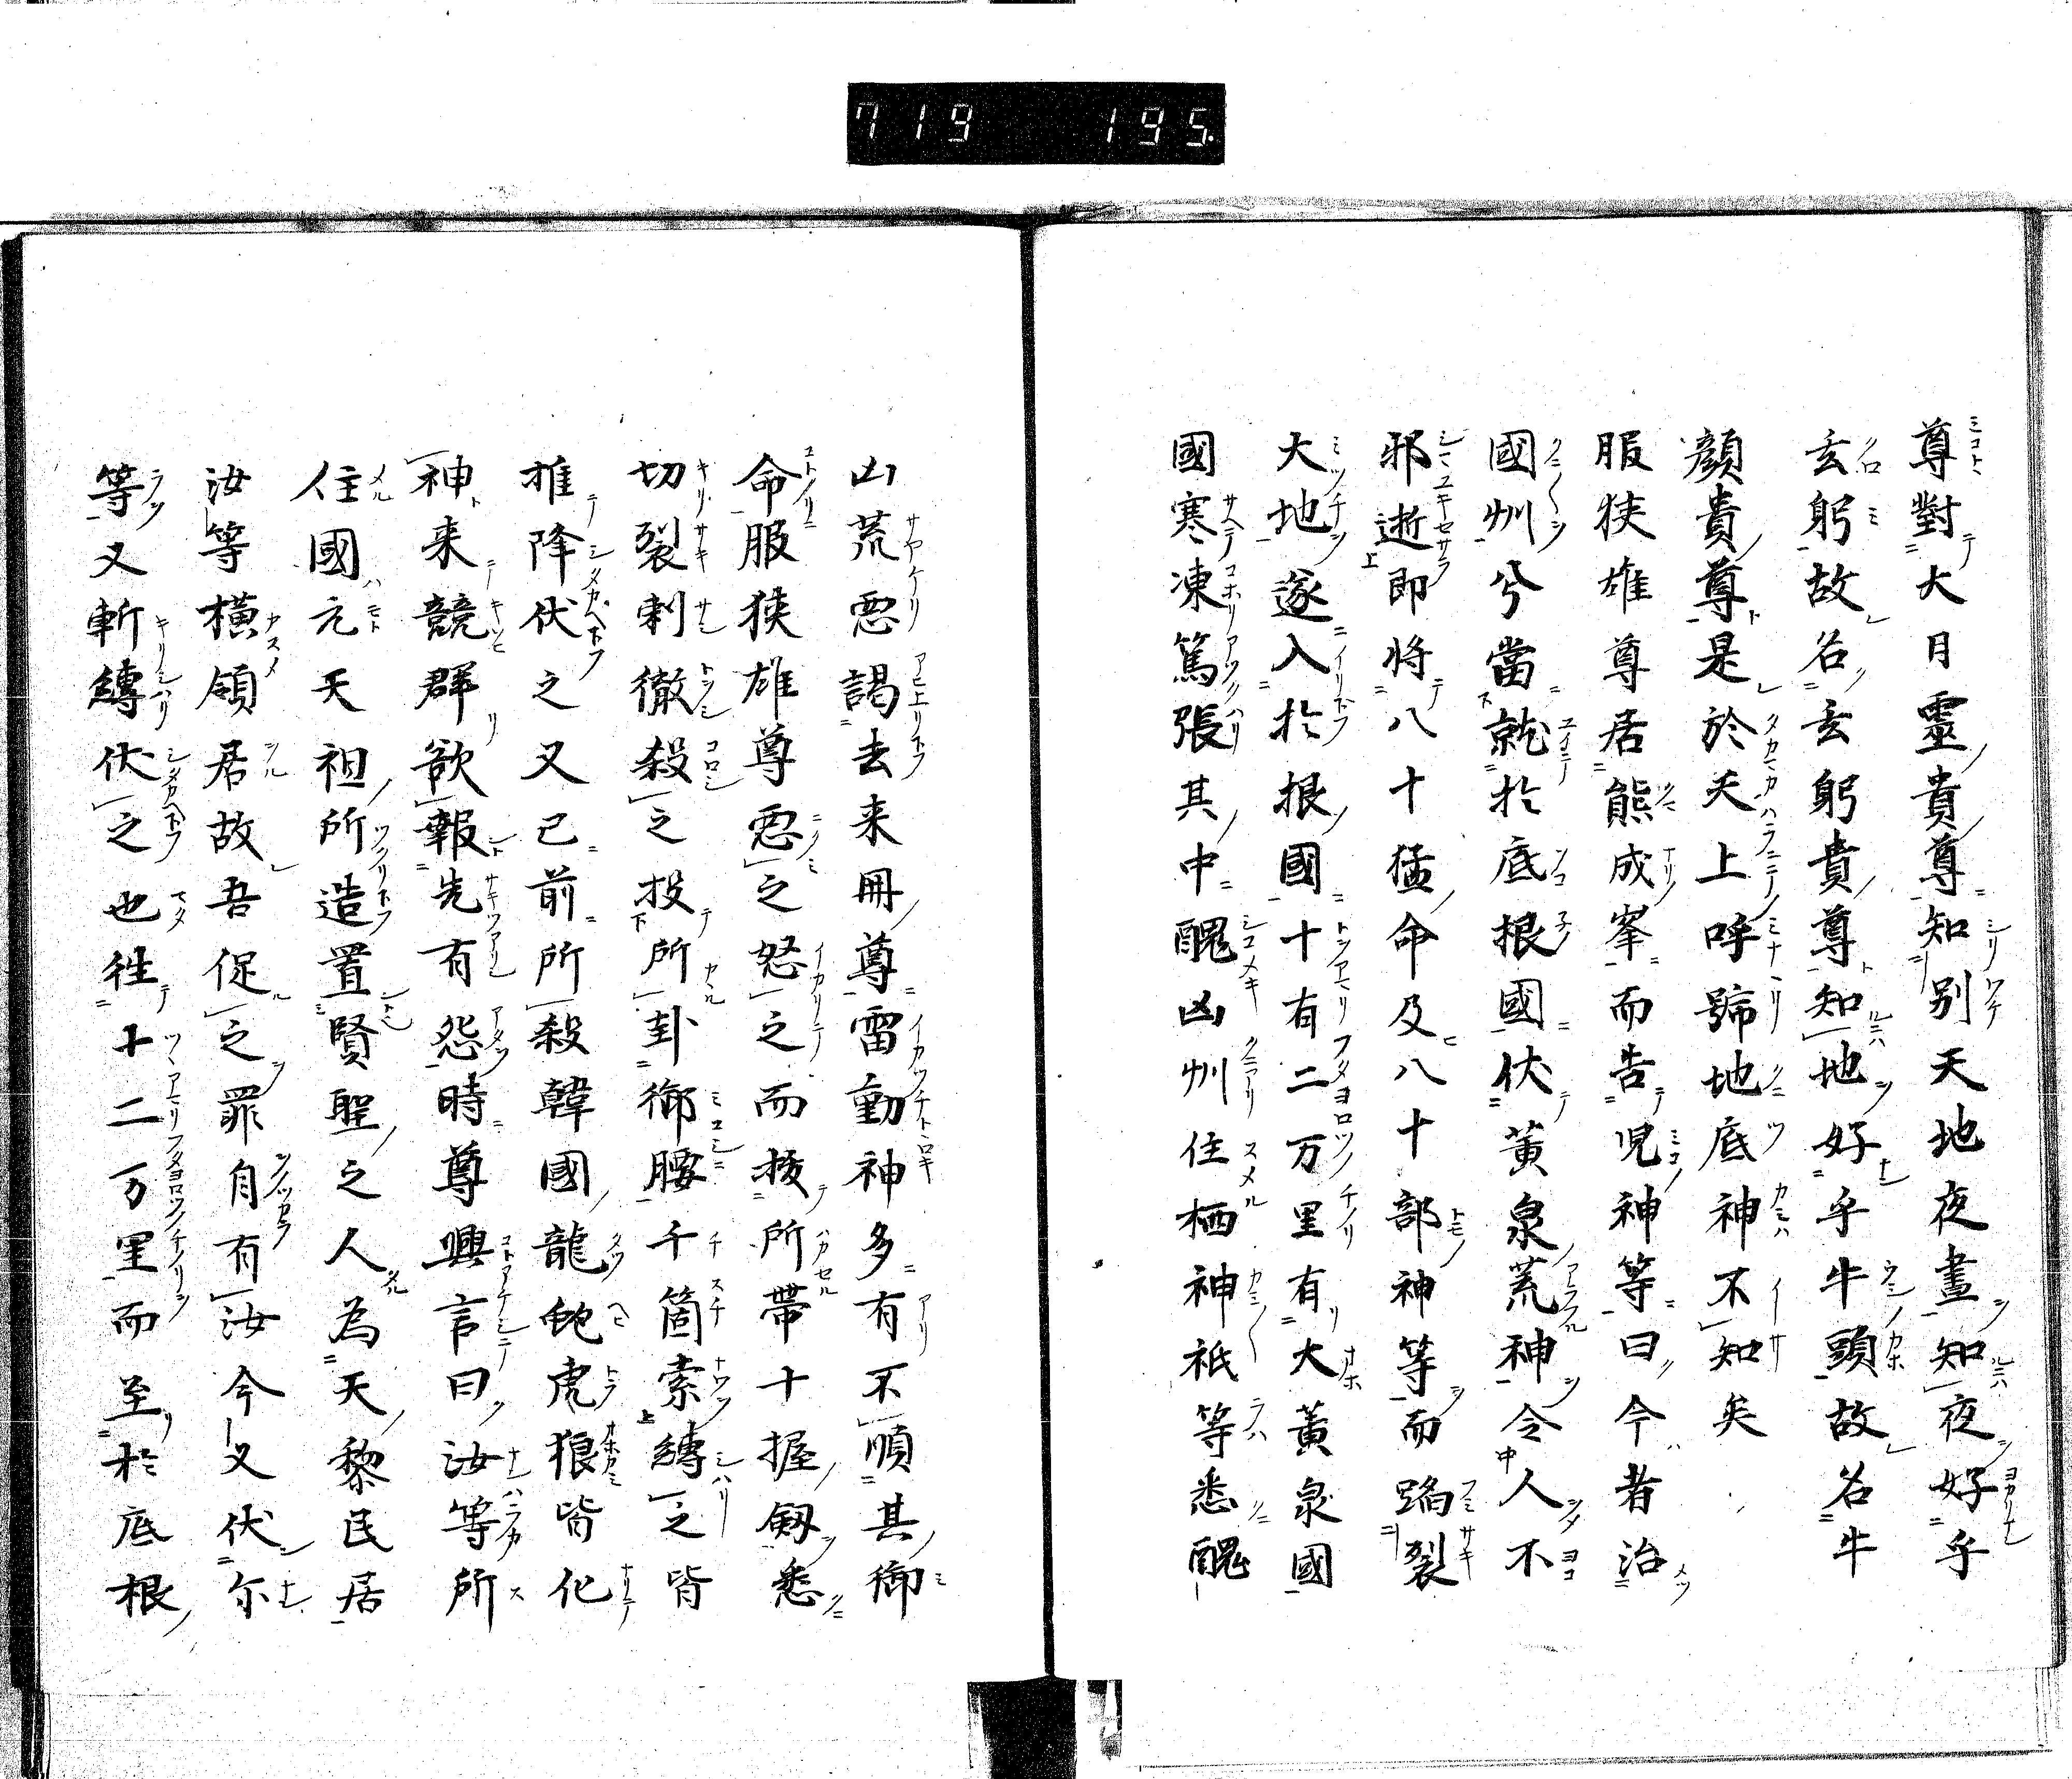 719 195
尊對大日靈貴尊知別天地夜晝知夜好乎
玄躬故名玄躬貴尊知地好乎牛頭故名牛
顔貴尊是於天上呼號地底神不知矣
服狭雄尊居熊成峯而告児神等曰今者治
國州兮當就於底根國伏黄泉荒神令人不
邪逝即将八十猛命及八十部神等而蹈裂
大地遂入於根國十有二万里有大黄泉國
國寒凍篤張其中醜凶州住栖神祇等悉醜
凶荒悪謁去来冊尊雷動神多有不順其御
命服狭雄尊悪之怒之而抜所帯十握劔悉
切裂刺徹殺之投所卦御腰千箇索縛之皆
推降伏之又已前所殺韓國龍虵虎狼皆化
神来競群欲報先有怨時尊興言曰汝等所
住國元天祖所造置賢聖之人為天黎民居
汝等横領居故吾促之罪自有汝今又伏尓
等又斬縛伏之也往十二万里而至於底根